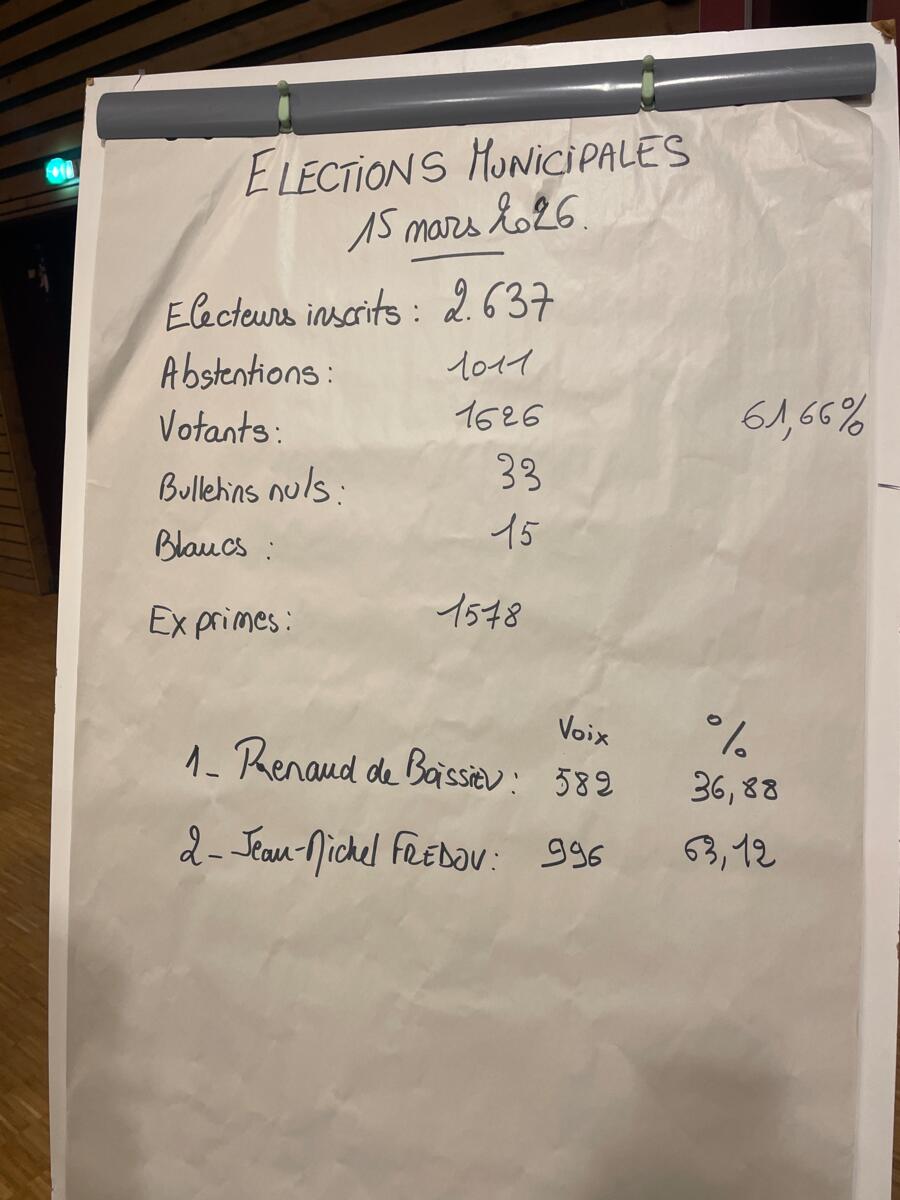 ELECTIONS MUNICIPALES
15 mars 2026.
Electeurs inscrits : 2.637
Abstentions : 1011
Votants : 1626 61,66%
Bulletins nuls : 33
Blancs : 15
Exprimes : 1578
Voix %
1_ Renaud de Boissieu : 582 36,88
2_ Jean-Michel FREDOU : 996 63,12